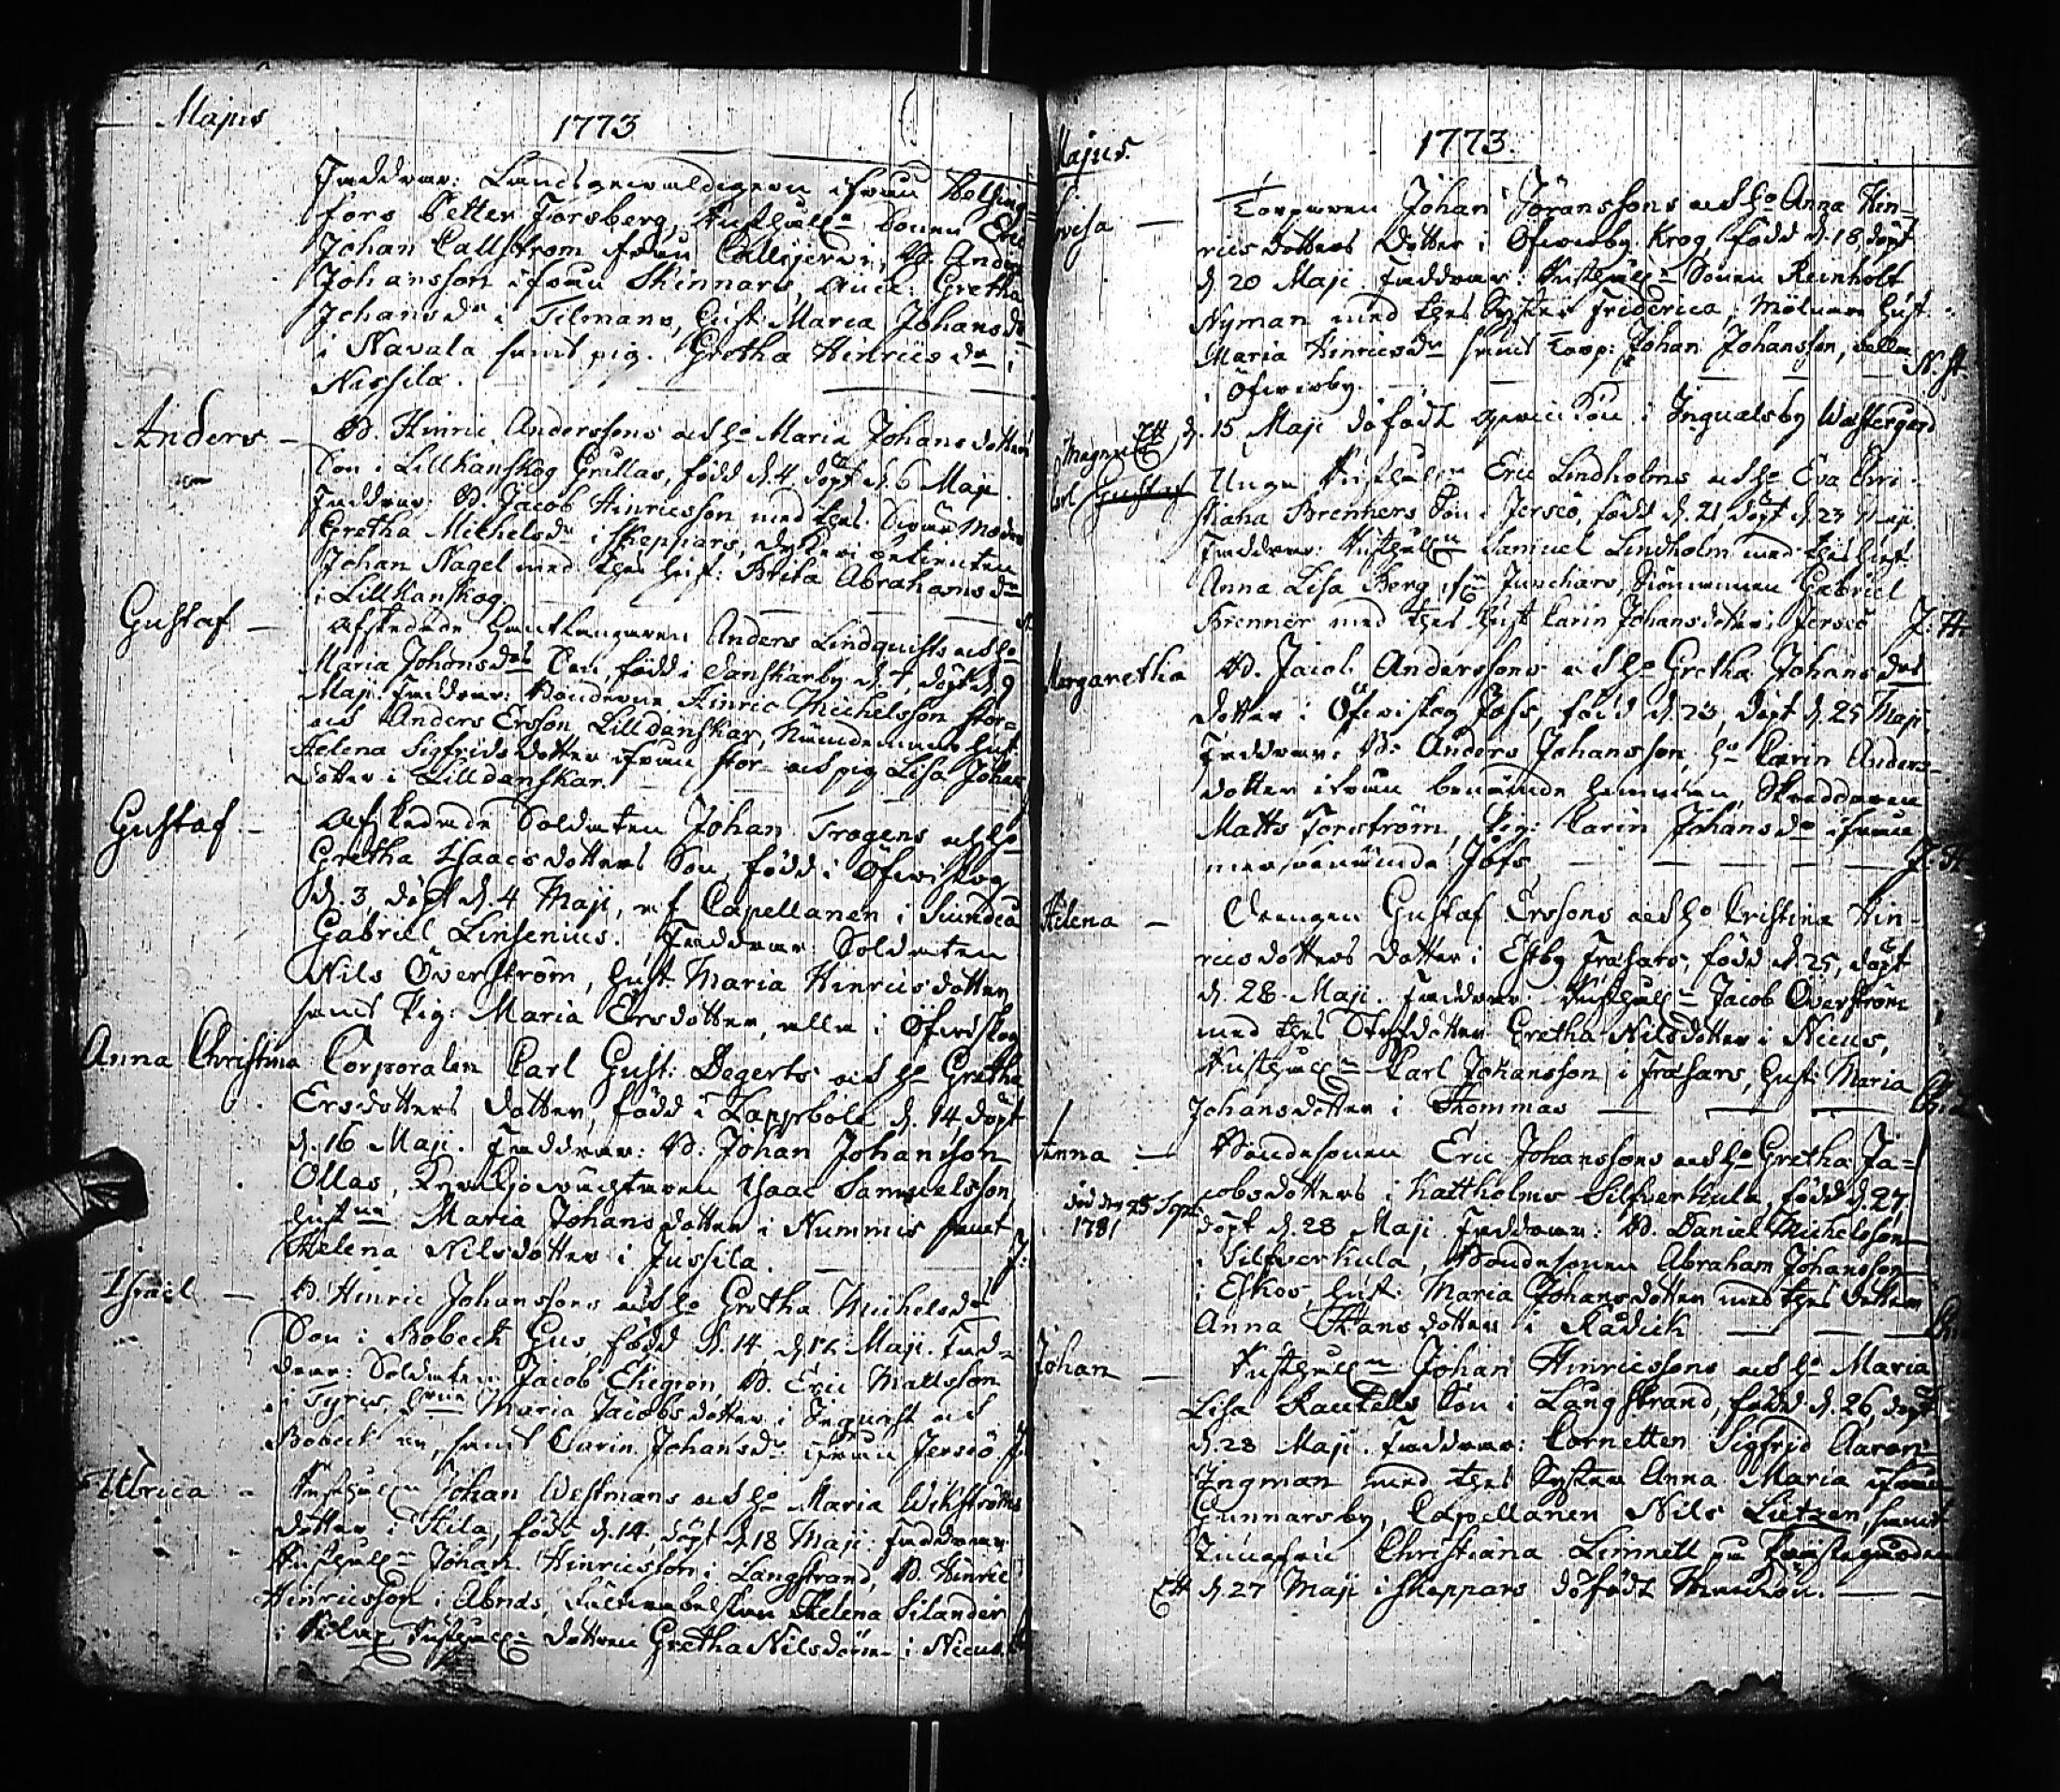 Majus 1773
Faddrar: Landsgewaldigern ifrån Helsing=
fors Petter Forsberg, Rusth: Sonen Eric
Johan Callstrom från Calljerwi, B. Anders
Johansson ifrån Skinnars, Gretha
Johansdr i Tilmans, hust: Maria Johansdr
i Navala samt pig. Gretha Hinricsdr i
Nissila.
Anders — B. Hinric Anderssons och ho Maria Johansdotters
Son i Lillkanskog Grullas, född d. 4, döpt d. 6 Maji.
Faddrar: B. Jacob Hinricsson med thes Swär Moder
Gretha Michelsdr i Skeppars,
Johan Nagel med thes hust: Brita Abrahamsdr
i Lillkanskog.
Gustaf — Afskedade Hantlangaren Anders Lindquists och ho
Maria Johansdrs Son, född i Danskarby d. 7, döpt d. 9
Maji. Faddrar: Bönderne Hinric Michelsson Stor=
och Anders Ersson Lilldanskar, Nämdemans hust.
Helena Sigfridsdotter ifrån Stor- och pig Lisa Johans
dotter i Lilldanskar.
Gustaf — Afskedade Soldaten Johan Trogens och ho
Gretha Isaacsdotters Son, född i Öfwiskog
d. 3, döpt d. 4 Maji, af Capellanen i Siundeå
Gabriel Linsenius. Faddrar: Soldaten
Nils Överström, hust. Maria Hinricsdotter
samt Pig: Maria Ersdotter, alla i Öfwiskog
Anna Christina Corporalen Carl Gust: Degerts och ho Gretha
Ersdotters dotter, född i Lappböle d. 14, döpt
d. 16 Maji. Faddrar: B: Johan Johansson
Ollas, Isaac Samuelsson,
hust Maria Johansdotter i Nummis samt
Helena Nilsdotter i Jussila.
Israel — B. Hinric Johanssons och ho Gretha Michelsdrs
Son i Bobeck Gus, född d. 14, d. 16 Maji. Fad=
drar: Soldaten Jacob Ekegren, B. Eric Mattsson
i Tyris, Maria Jacobsdotter i Ingwast och
Bobeck samt Carin Johansdr ifrån Jersö
Ulrica — Rusth: Johan Westmans och ho Maria Wikströms
dotter i Kila, född d. 14, döpt d. 18 Maji. Faddrar
Rusth: Johan Hinricsson i Långstrand, B. Hinric
Hinricsson i Abrās, Helena Silander
i Rusth: dottren Gretha Nilsdotter i Nicus.
Majus. 1773.
Lovisa — Torparen Johan Jöranssons och ho Anna Hin=
ricsdotters Dotter i Öfwerby Krog, född d. 18, döpt
d. 20 Maji. Faddrar: Rusth: Sonen Reinholt
Nyman med thes Syster Friderica, hust:
Maria Hinricsdr samt Torp: Johan Johansson, alla
i Öfwerby. — N. St.
d. 15 Maji dödfödt i Ingwalsby Wästergård
Magnus
Carl Gustaf Unga Rusth: Eric Lindholms och ho Eva Chri=
stiana Brenners Son i Jersö, född d. 21, döpt d. 23 Maji.
Faddrar: Rusth: Samuel Lindholm med thes hust.
Anna Lisa Berg ifrån Junckars, Gabriel
Brenner med thes hust Carin Johansdotter i Jersö
Margaretha B. Jacob Anderssons och ho Gretha Johansdrs
dotter i Öfwiskog Jofs, född d. 23, döpt d. 25 Maji
Faddrar: B: Anders Johansson, ho Carin Anders=
dotter ifrån benämde hemman, Skräddaren
Matts Forsström, Pig: Carin Johansdr ifrån
merbenämde Jofs
Helena — Drengen Gustaf Erssons och ho Cristina Hin=
ricsdotters dotter i Estby Frasars, född d. 25, döpt
d. 28 Maji. Faddrar: Rusth: Jacob Överström
med thes Styfdotter Gretha Nilsdotter i Nicus,
Rusth: Carl Johansson i Frasars, hust: Maria
Johansdotter i Thommas
Anna — Bondesonen Eric Johanssons och ho Gretha Ja=
cobsdotters i Kattholms Silfverkula, född d. 27,
död den 25 Sept 1781
döpt d. 28 Maji. Faddrar: B. Daniel Michelsson
i Silfverkula, Bondesonen Abraham Johansson
i Eskos, hust: Maria Johansdotter med thes dotter
Anna Hansdotter i Rådick
Johan — Rusth: Johan Hinricssons och ho Maria
Lisa Rautells Son i Långstrand, född d. 26, döpt
d. 28 Maji. Faddrar: Cornetten Sigfrid Aaron
Ingman med thes Syster Anna Maria ifrån
Gunnarsby, Capellanen Nils Lietzen, samt
Jungfru Christiana Limnell på Prästegården
d. 27 Maji i Skeppars dödfödt